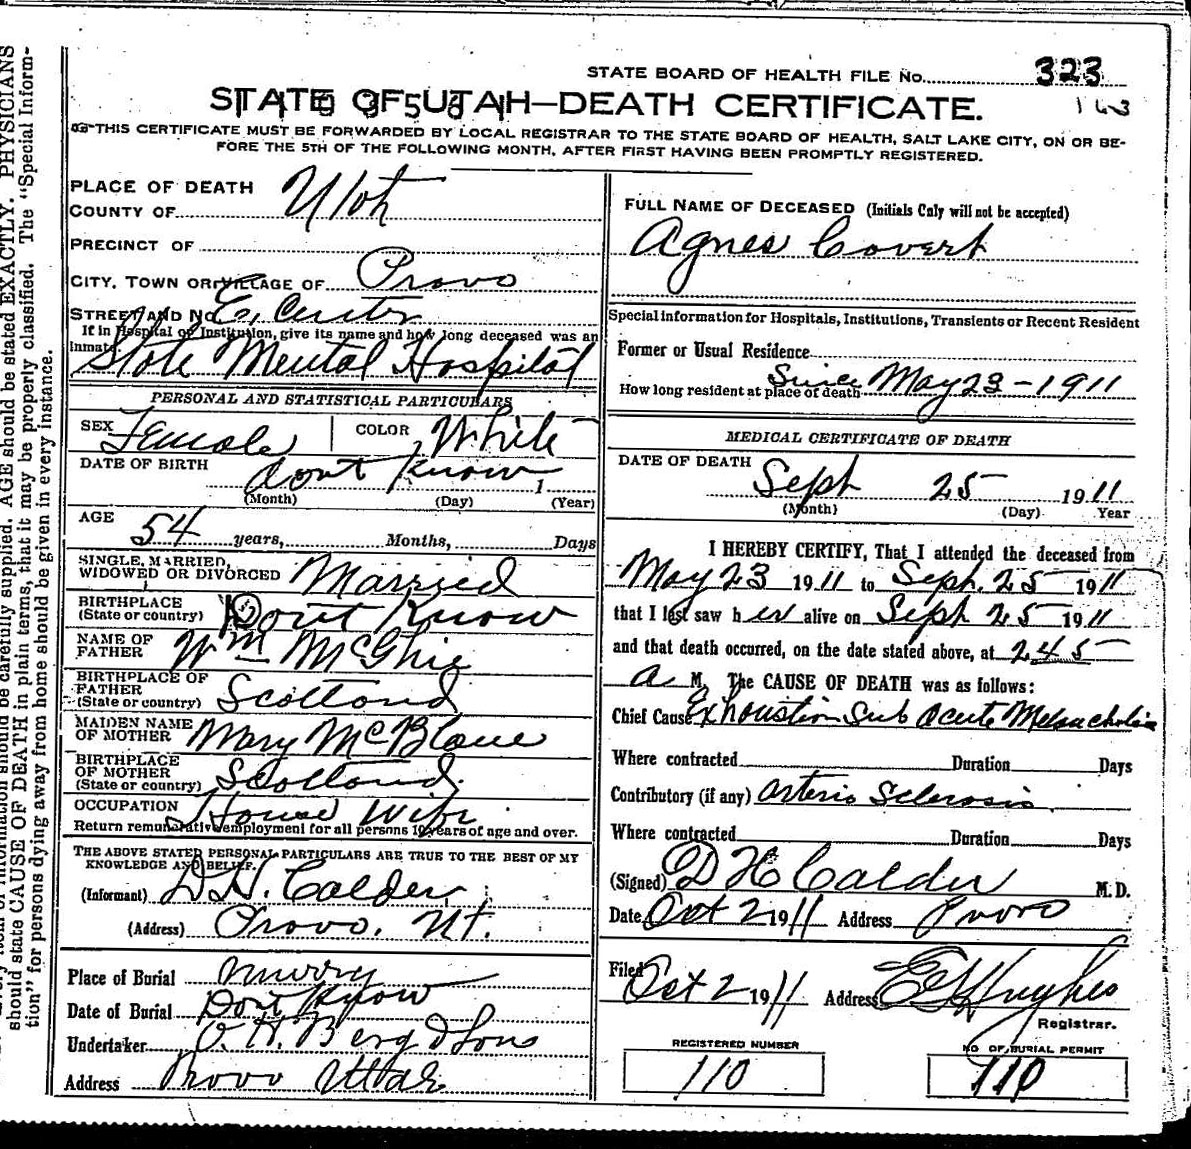 STATE BOARD OF HEALTH FILE No. 323
STATE OF UTAH—DEATH CERTIFICATE.
163
THIS CERTIFICATE MUST BE FORWARDED BY LOCAL REGISTRAR TO THE STATE BOARD OF HEALTH, SALT LAKE CITY, ON OR BE-
FORE THE 5TH OF THE FOLLOWING MONTH, AFTER FIRST HAVING BEEN PROMPTLY REGISTERED.
PLACE OF DEATH
COUNTY OF Utah
PRECINCT OF
CITY, TOWN OR VILLAGE OF Provo
STREET AND No. E. Center
If in Hospital or Institution, give its name and how long deceased was an
inmate.
State Mental Hospital
PERSONAL AND STATISTICAL PARTICULARS
SEX Female COLOR White
DATE OF BIRTH dont Know 1
(Month) (Day) (Year)
AGE 54 years, Months, Days
SINGLE, MARRIED,
WIDOWED OR DIVORCED Married
BIRTHPLACE
(State or country) Dont Know
NAME OF
FATHER Wm McGhie
BIRTHPLACE OF
FATHER
(State or country) Scotland
MAIDEN NAME
OF MOTHER Mary McBlane
BIRTHPLACE
OF MOTHER
(State or country) Scotland.
OCCUPATION House Wife
Return remunerative employment for all persons 10 years of age and over.
THE ABOVE STATED PERSONAL PARTICULARS ARE TRUE TO THE BEST OF MY
KNOWLEDGE AND BELIEF.
(Informant) D. H. Calder,
(Address) Provo. Ut.
Place of Burial Murry
Date of Burial Dont Know
Undertaker O. H. Berg & Sons
Address Provo Utah
FULL NAME OF DECEASED (Initials Only will not be accepted)
Agnes Covert
Special information for Hospitals, Institutions, Transients or Recent Resident
Former or Usual Residence
How long resident at place of death Since May 23-1911
MEDICAL CERTIFICATE OF DEATH
DATE OF DEATH Sept 25 1911
(Month) (Day) Year
I HEREBY CERTIFY, That I attended the deceased from
May 23 1911 to Sept. 25 1911
that I last saw her alive on Sept 25 1911
and that death occurred, on the date stated above, at 245
A M. The CAUSE OF DEATH was as follows:
Chief Cause Exhoustion Sub Acute Melancholia
Where contracted Duration Days
Contributory (if any) Arterio Sclerosis.
Where contracted Duration Days
(Signed) D H Calder M.D.
Date Oct 2 1911 Address Provo
Filed Oct 2 1911 Address E G Hughes
Registrar.
REGISTERED NUMBER
110
NO OF BURIAL PERMIT
110
should be carefully supplied. AGE should be stated EXACTLY. PHYSICIANS
should state CAUSE OF DEATH in plain terms, that it may be properly classified. The "Special Inform-
tion" for persons dying away from home should be given in every instance.